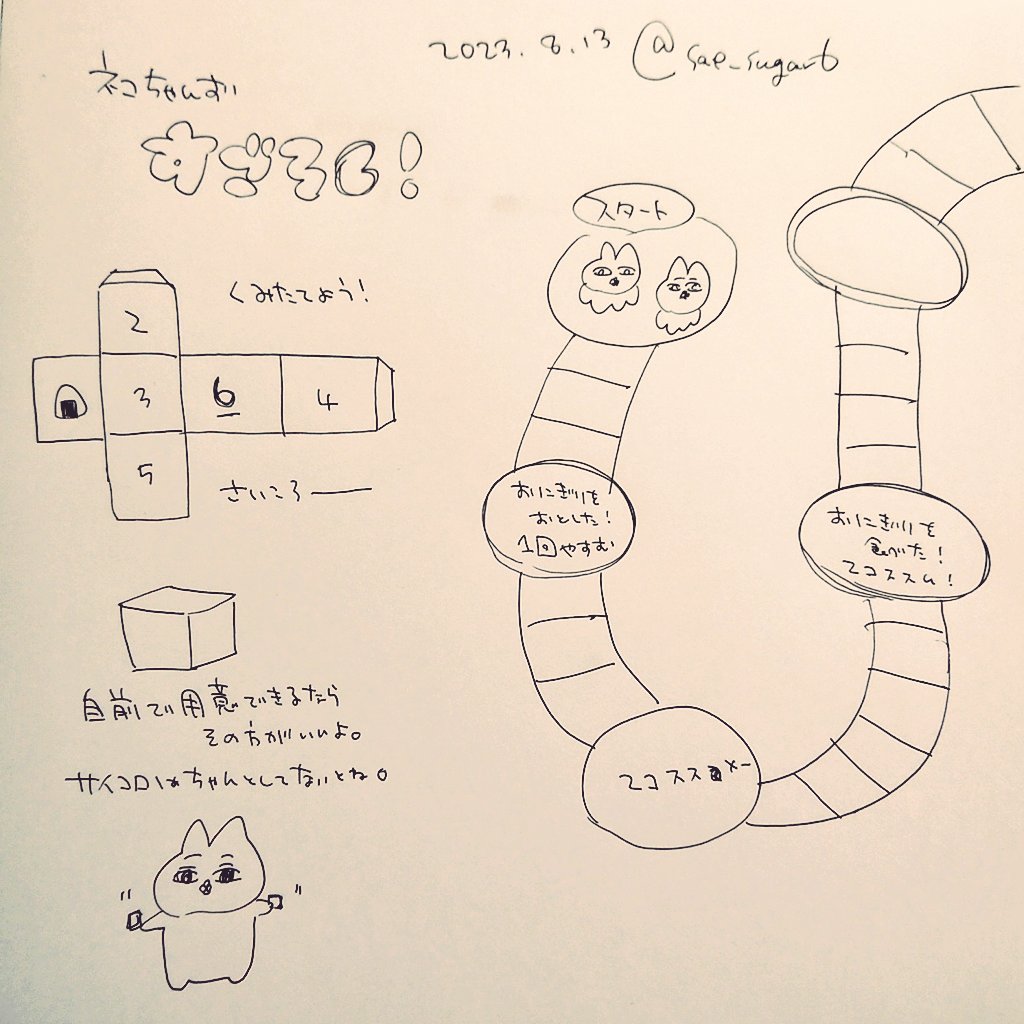 2023.8.13 @sae_sugar6
ネコちゃんず
すごろく!
くみたてよう!
2
3
6
4
5
さいころ
自前で用意できるたら
その方がいいよ。
サイコロはちゃんとしてないとね。
スタート
おにぎりを
おとした!
1回やすむ
2コススメー
おにぎりを
食べた!
2コススム!